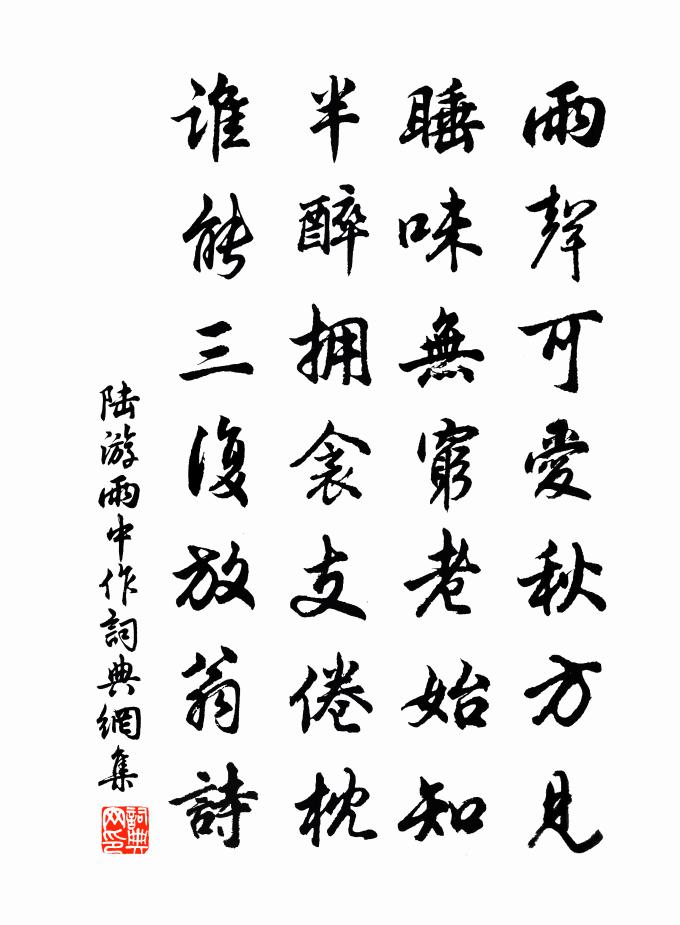 雨聲可愛秋方見
睡味無窮老始知
半醉擁衾支倦枕
誰能三復放翁詩
陸游雨中作詞典網集
詞典网印